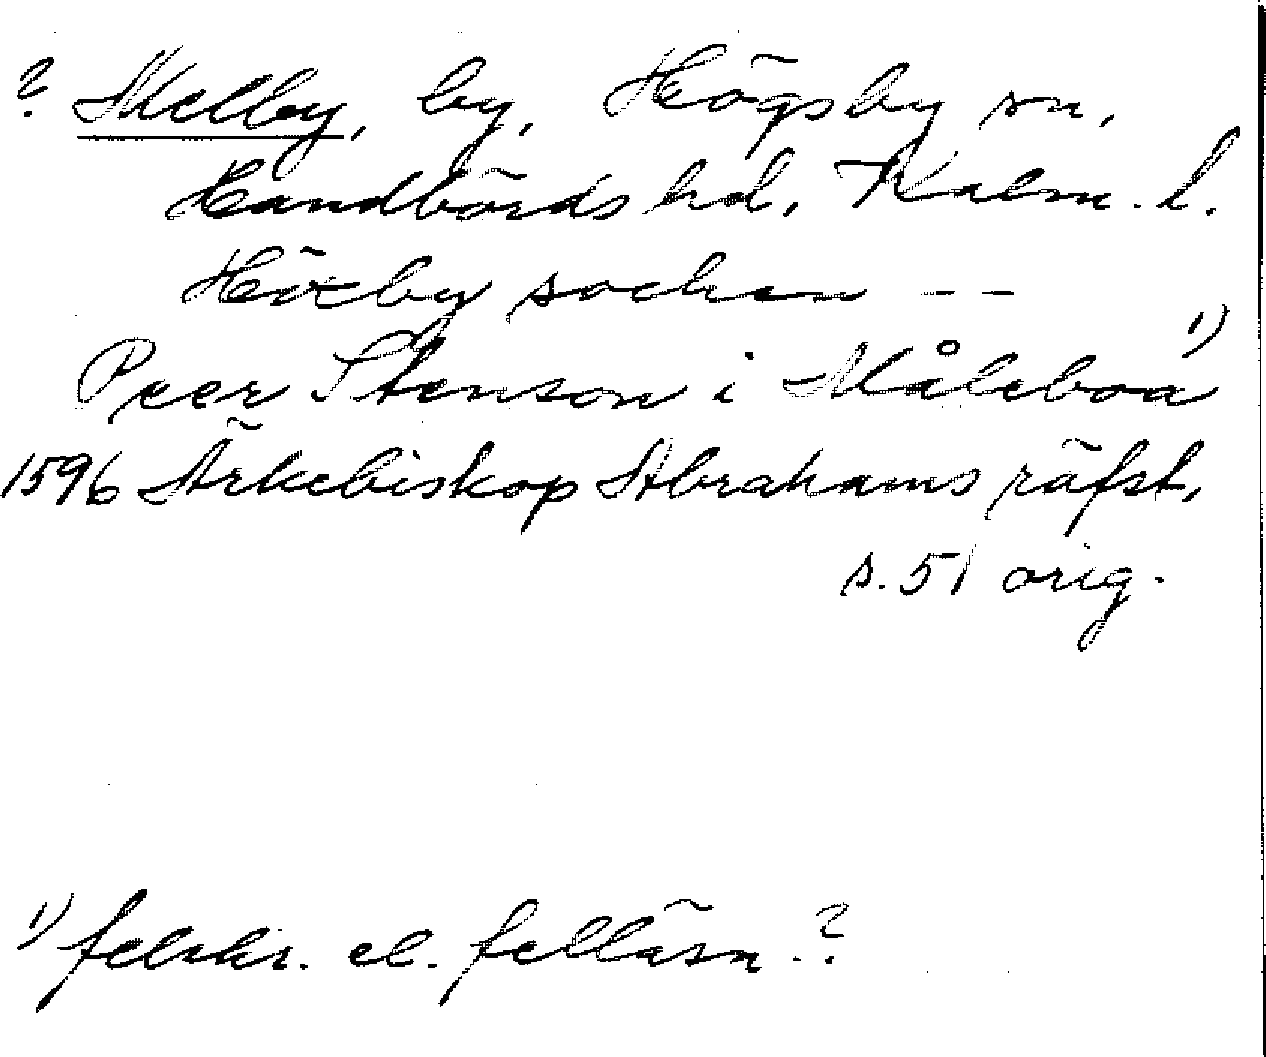 ? Melby, by, Högsby sn,
Handbörds hd, Kalm. l.
Höxby sochen - -
Peer Stenson i Måleboa 1)
1596 Ärkebiskop Abrahams räfst,
s. 51 orig.
1) felskr. el. felläsn. ?